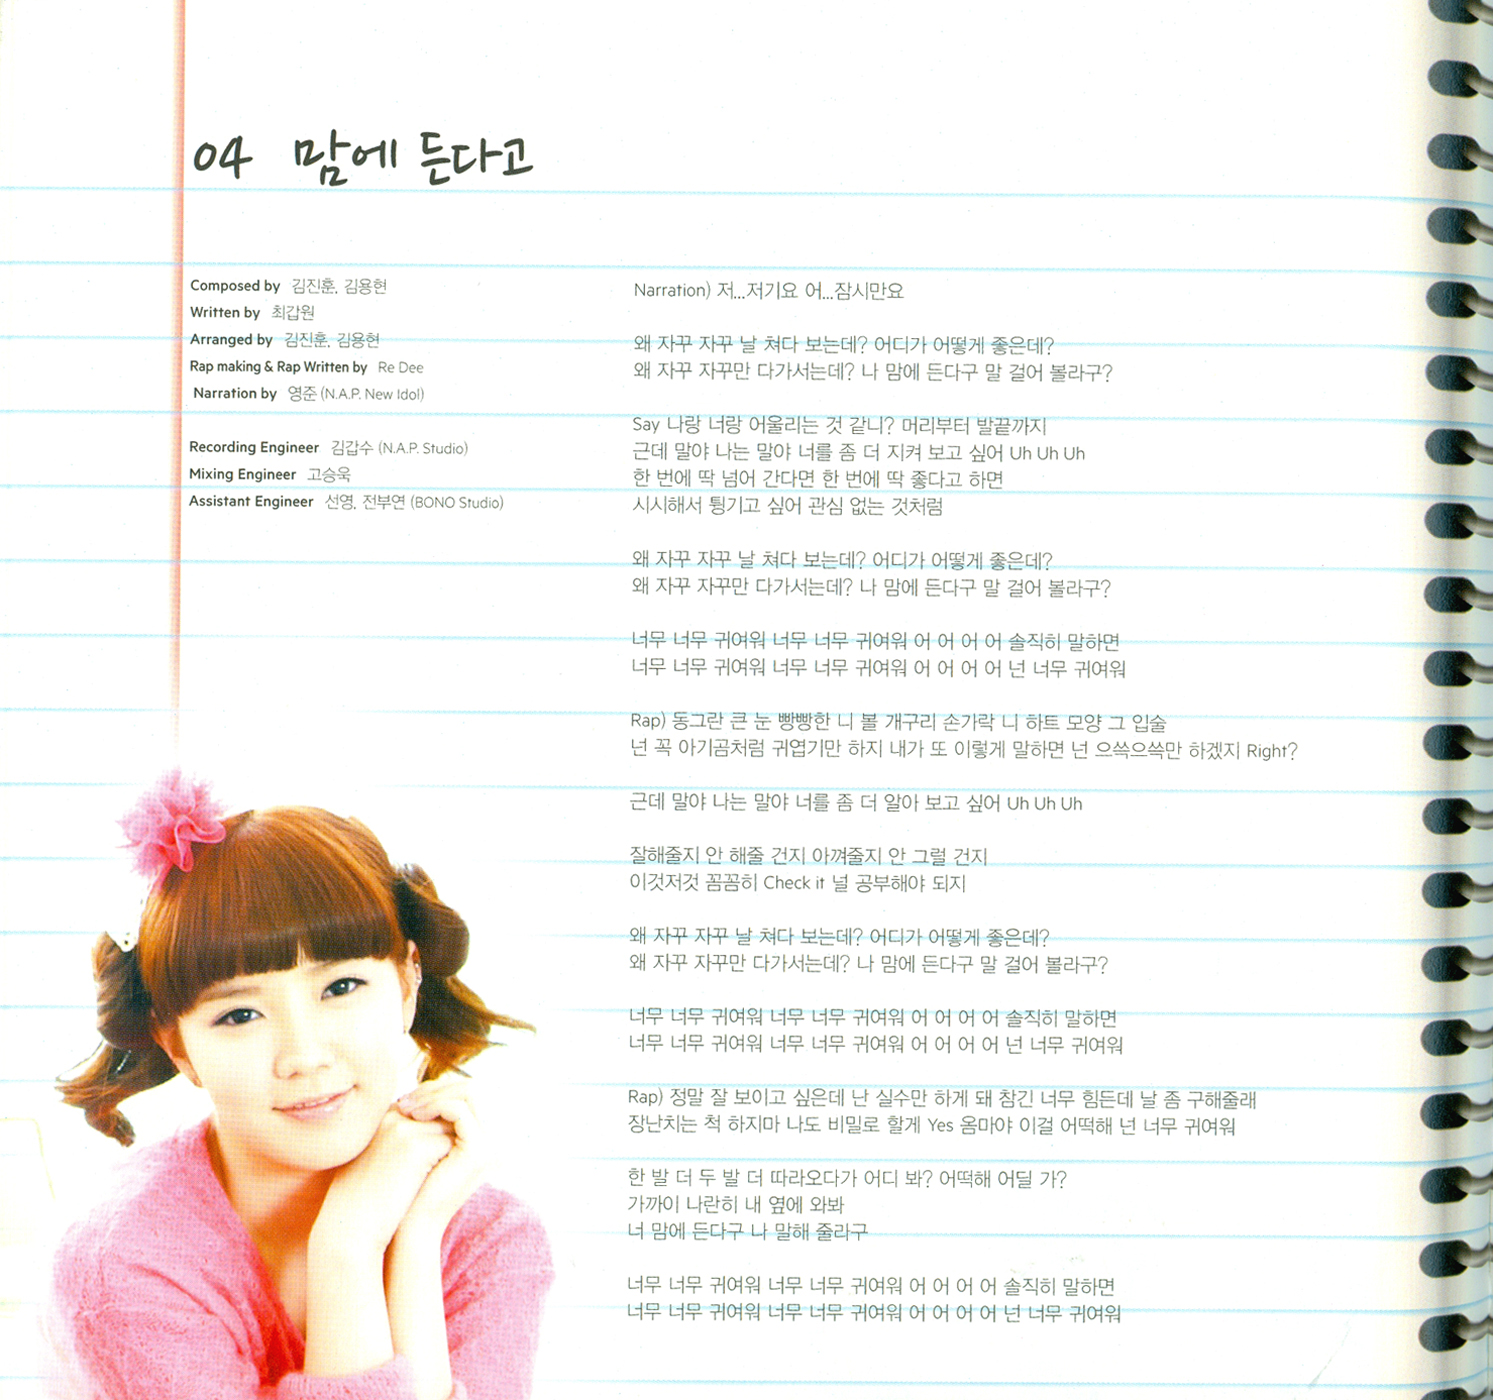 04 맘에 든다고
Composed by 김진훈, 김용현
Written by 최갑원
Arranged by 김진훈, 김용현
Rap making & Rap Written by Re Dee
Narration by 영준 (N.A.P. New Idol)
Recording Engineer 김갑수 (N.A.P. Studio)
Mixing Engineer 고승욱
Assistant Engineer 선영, 전부연 (BONO Studio)
Narration) 저...저기요 어...잠시만요
왜 자꾸 자꾸 날 쳐다 보는데? 어디가 어떻게 좋은데?
왜 자꾸 자꾸만 다가서는데? 나 맘에 든다구 말 걸어 볼라구?
Say 나랑 너랑 어울리는 것 같니? 머리부터 발끝까지
근데 말야 나는 말야 너를 좀 더 지켜 보고 싶어 Uh Uh Uh
한 번에 딱 넘어 간다면 한 번에 딱 좋다고 하면
시시해서 튕기고 싶어 관심 없는 것처럼
왜 자꾸 자꾸 날 쳐다 보는데? 어디가 어떻게 좋은데?
왜 자꾸 자꾸만 다가서는데? 나 맘에 든다구 말 걸어 볼라구?
너무 너무 귀여워 너무 너무 귀여워 어 어 어 어 솔직히 말하면
너무 너무 귀여워 너무 너무 귀여워 어 어 어 어 넌 너무 귀여워
Rap) 동그란 큰 눈 빵빵한 니 볼 개구리 손가락 니 하트 모양 그 입술
넌 꼭 아기곰처럼 귀엽기만 하지 내가 또 이렇게 말하면 넌 으쓱으쓱만 하겠지 Right?
근데 말야 나는 말야 너를 좀 더 알아 보고 싶어 Uh Uh Uh
잘해줄지 안 해줄 건지 아껴줄지 안 그럴 건지
이것저것 꼼꼼히 Check it 널 공부해야 되지
왜 자꾸 자꾸 날 쳐다 보는데? 어디가 어떻게 좋은데?
왜 자꾸 자꾸만 다가서는데? 나 맘에 든다구 말 걸어 볼라구?
너무 너무 귀여워 너무 너무 귀여워 어 어 어 어 솔직히 말하면
너무 너무 귀여워 너무 너무 귀여워 어 어 어 어 넌 너무 귀여워
Rap) 정말 잘 보이고 싶은데 난 실수만 하게 돼 참긴 너무 힘든데 날 좀 구해줄래
장난치는 척 하지마 나도 비밀로 할게 Yes 옴마야 이걸 어떡해 넌 너무 귀여워
한 발 더 두 발 더 따라오다가 어디 봐? 어떡해 어딜 가?
가까이 나란히 내 옆에 와봐
너 맘에 든다구 나 말해 줄라구
너무 너무 귀여워 너무 너무 귀여워 어 어 어 어 솔직히 말하면
너무 너무 귀여워 너무 너무 귀여워 어 어 어 어 넌 너무 귀여워